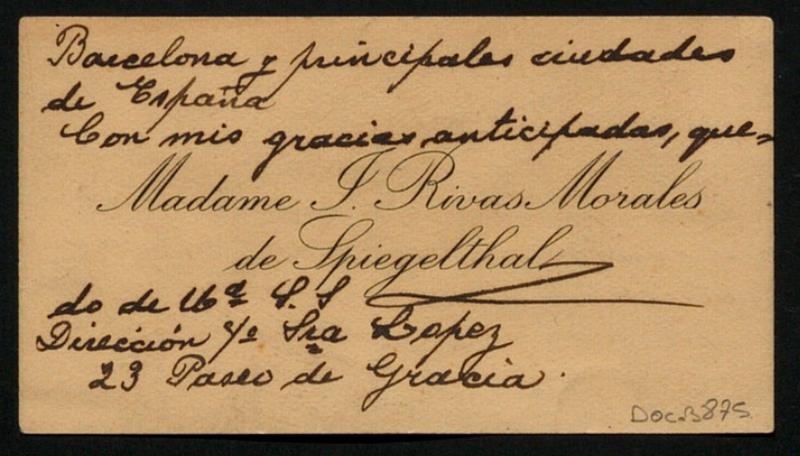 Barcelona y principales ciudades
de España
Con mis gracias anticipadas, que-
Madame J. Rivas Morales
de Spiegelthal
do de Ud S. S
Dirección c/o Sra Lopez
23 Paseo de Gracia.
Doc.B 875.